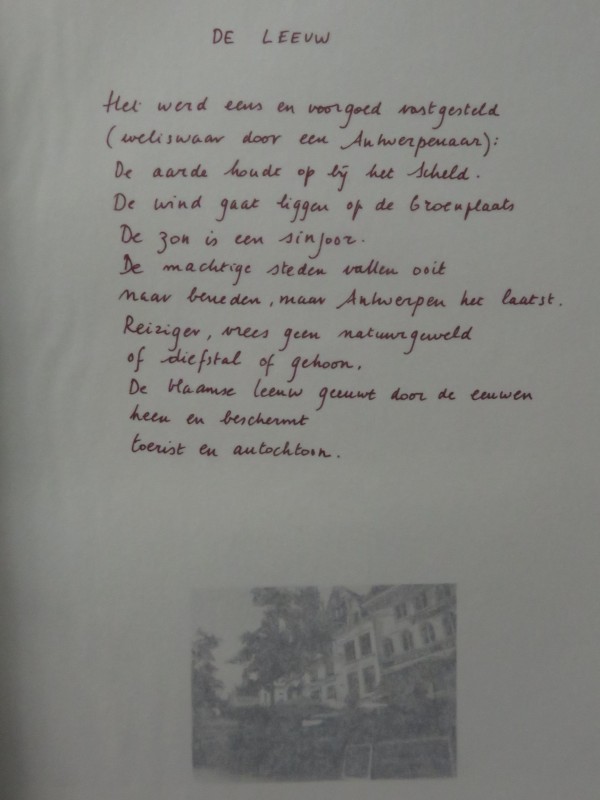 DE LEEUW
Het werd eens en voorgoed vastgesteld
(weliswaar door een Antwerpenaar):
De aarde houdt op bij het Scheld.
De wind gaat liggen op de Groenplaats
De zon is een sinjoor.
De machtige steden vallen ooit
naar beneden, maar Antwerpen het laatst.
Reiziger, vrees geen natuurgeweld
of diefstal of gehoon.
De Vlaamse leeuw geeuwt door de eeuwen
heen en beschermt
toerist en autochtoon.